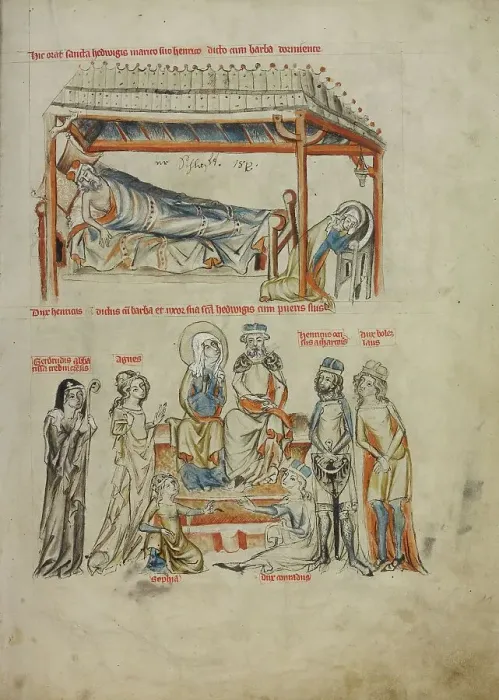 hic orat sancta hedwigis marito suo henrico dicto cum barba dormiente
Dux henricus dictus cū barba et uxor sua scā hedwigis cum pueris suis
Gerdrudis abba
tissa trebnicensis
agnes
henricus oc
cisus a thartaris
dux boles
laus
sophia
dux conradus